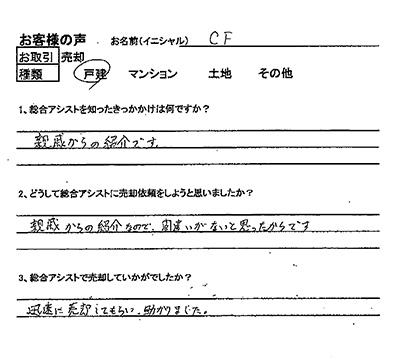 お客様の声 お名前(イニシャル) CF
お取引 売却
種類 戸建 マンション 土地 その他
1、総合アシストを知ったきっかかけは何ですか?
親戚からの紹介です。
2、どうして総合アシストに売却依頼をしようと思いましたか?
親戚からの紹介なので、間違いがないと思ったからです
3、総合アシストで売却していかがでしたか?
迅速に売却してもらい、助かりました。